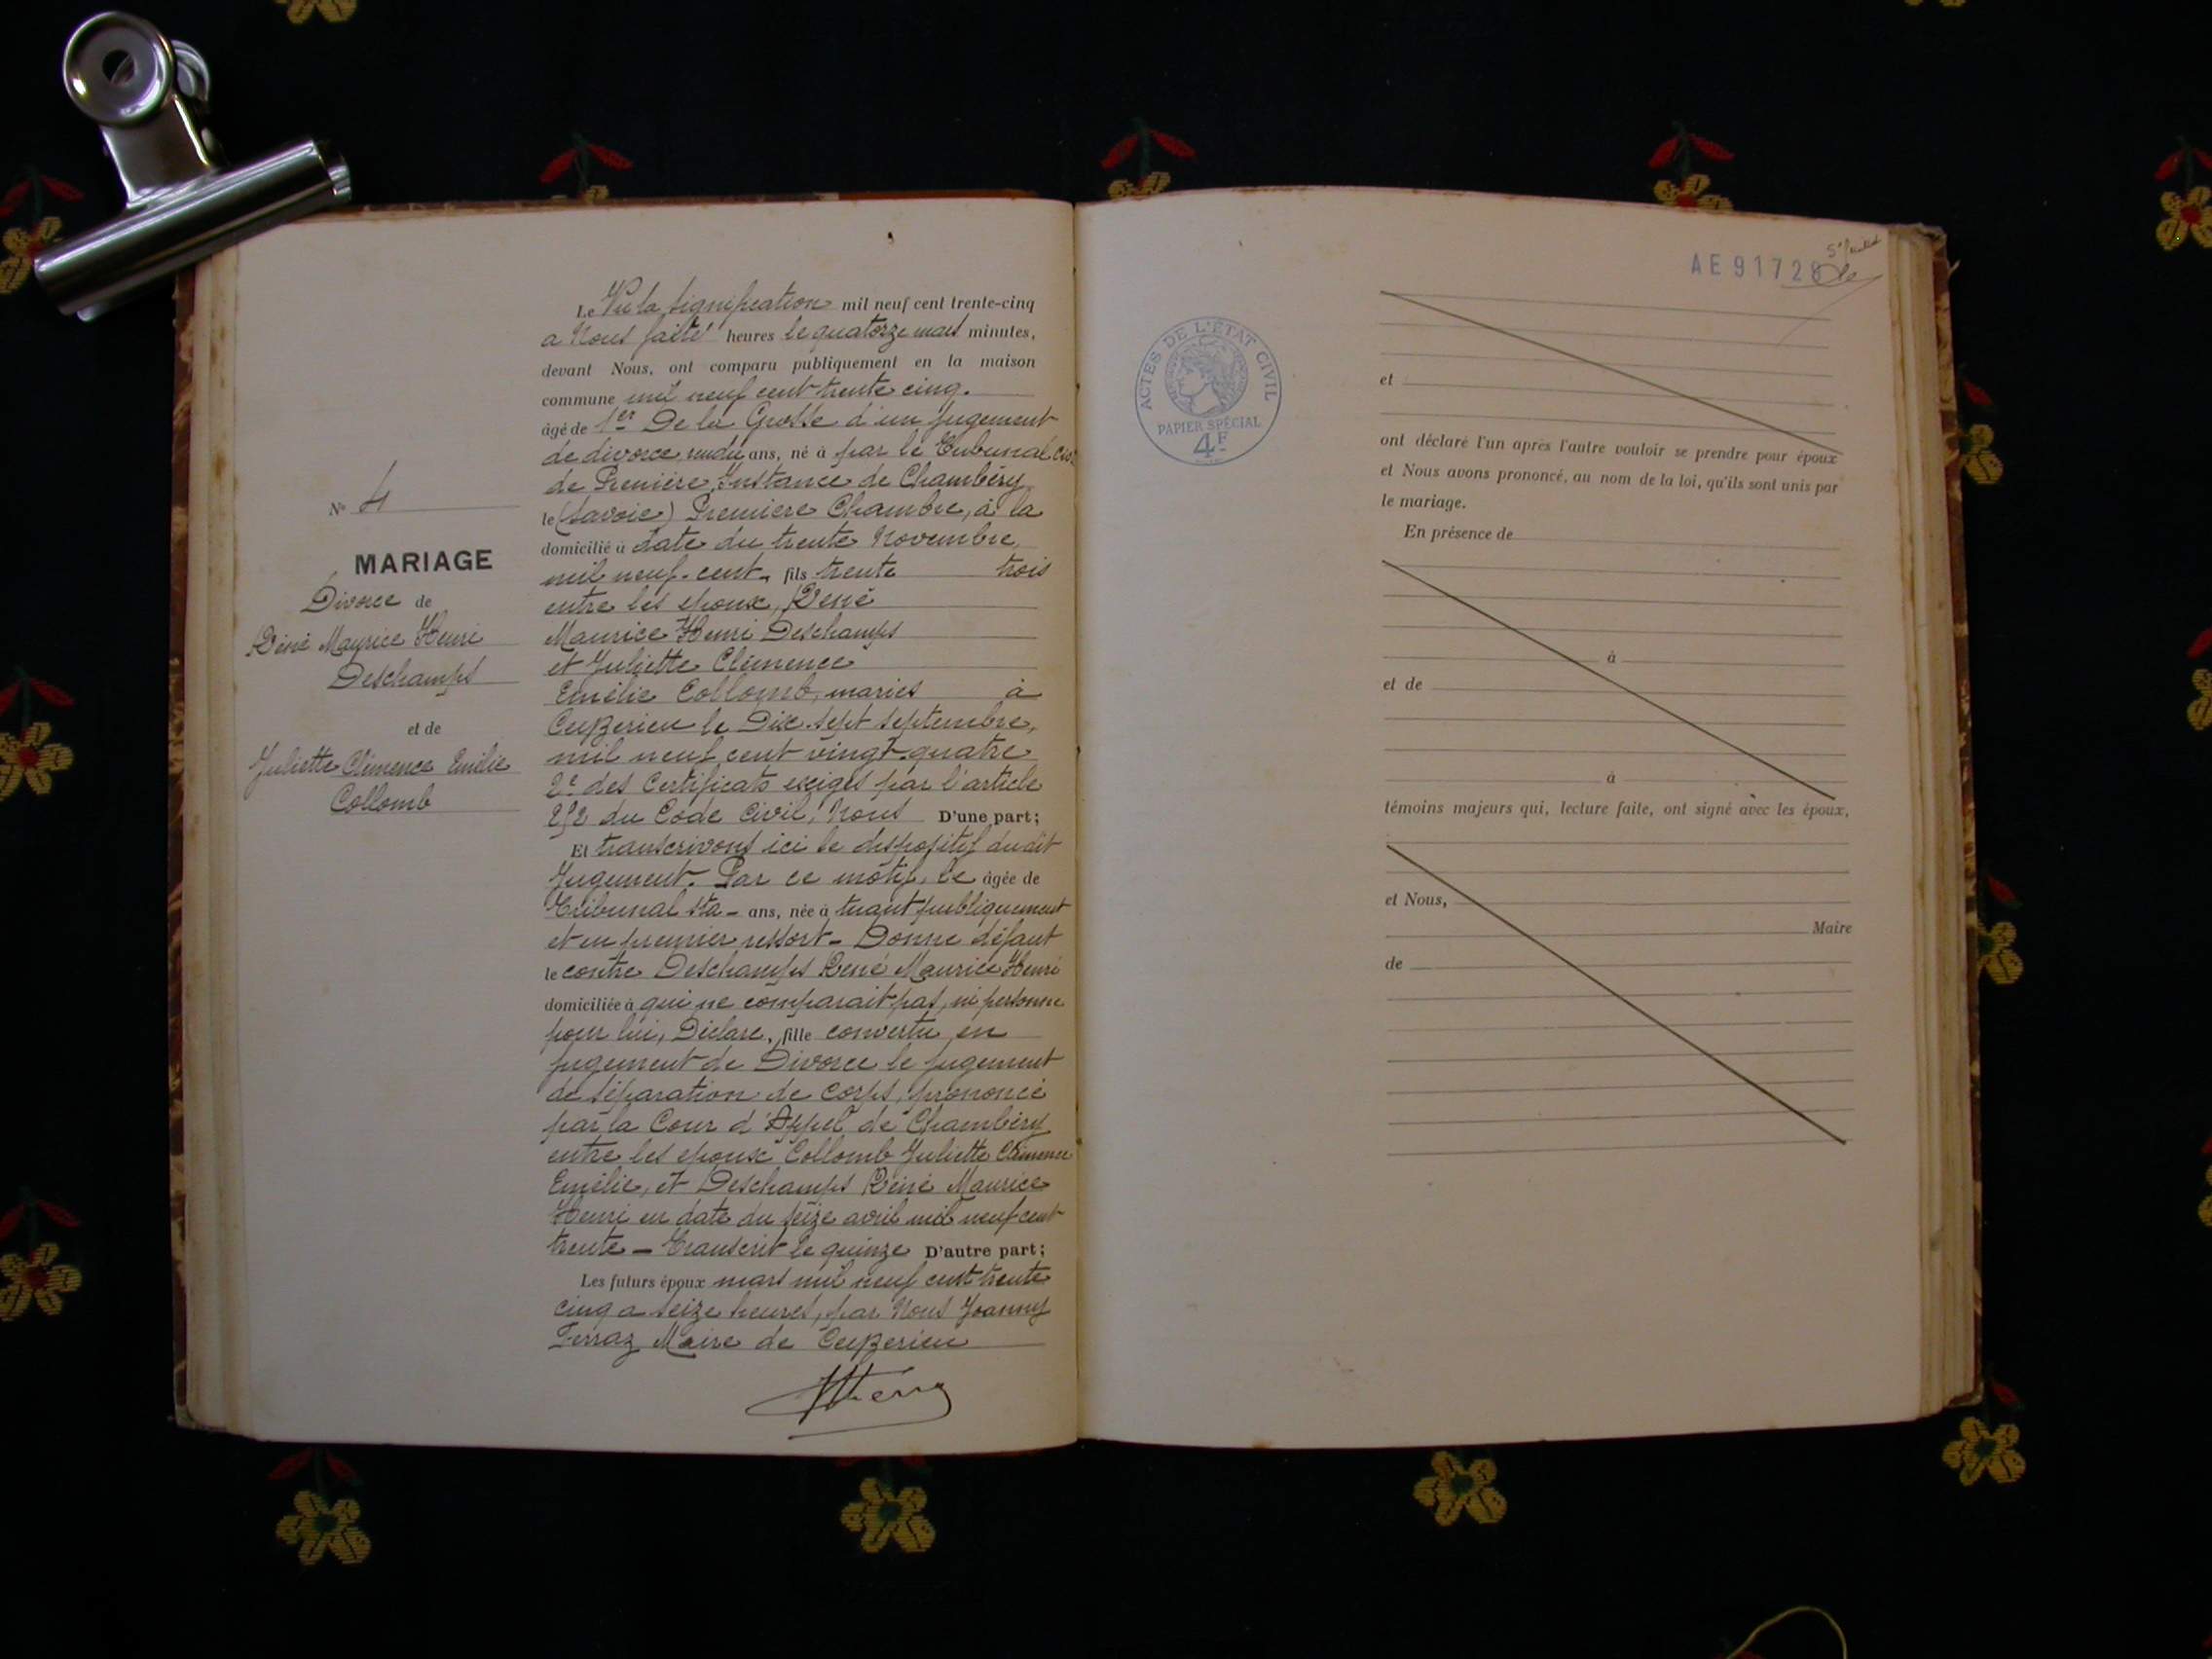 Nº 4
MARIAGE
Divorce de
Réné Maurice Henri
Deschamps
et de
Juliette Clémence Emilie
Collomb
Le Vu la signification mil neuf cent trente-cinq
a Nous faite heures le quatorze mars minutes,
devant Nous, ont comparu publiquement en la maison
commune mil neuf cent trente cinq.
âgé de 1er De la Grosse d'un jugement
de divorce rendu ans, né à par le Tribunal civil
de Première Instance de Chambéry
le (Savoie) Première Chambre, à la
domicilié à date du trente Novembre,
mil neuf-cent- fils trente trois
entre les époux, René
Maurice Henri Deschamps
et Juliette Clémence
Emélie Collomb, mariés à
Ceyzerieu le Dix-sept septembre,
mil neuf cent vingt-quatre
2e des Certificats exigés par l'article
252 du Code Civil, Nous D'une part;
Et transcrivons ici le dispositif dudit
Jugement. Par ce motif, le âgée de
Tribunal sta- ans, née à tuant publiquement
et en premier ressort- Donne défaut
le contre Deschamps René Maurice Henri
domiciliée à qui ne comparait pas, ni personne
pour lui, Déclare, fille convertu en
jugement de Divorce le jugement
de séparation de corps, prononcé
par la Cour d'Appel de Chambéry
entre les époux Collomb Juliette Clémence
Emélie, et Deschamps Réné Maurice
Henri en date du seize avril mil neuf cent
trente - Transcrit le quinze D'autre part;
Les futurs époux mars mil neuf cent trente
cinq a seize heures, par Nous Joanny
Perraz Maire de Ceyzerieu
AE 91728
ACTES DE L'ÉTAT CIVIL
PAPIER SPÉCIAL
4F
et
ont déclaré l'un après l'autre vouloir se prendre pour époux
et Nous avons prononcé, au nom de la loi, qu'ils sont unis par
le mariage.
En présence de
à
et de
à
témoins majeurs qui, lecture faite, ont signé avec les époux,
et Nous,
Maire
de